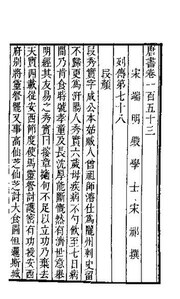 唐書卷一百五十三
宋端明殿學士宋祁撰
列傳第七十八
段顏
段秀實字成公本姑臧人曾祖師濬仕爲隴州刺史留
不歸更爲汧陽人秀實六歲母疾病不勺飲至七日病
間乃肯食時號孝童及長沉厚能斷慨然有濟世意舉
明經其友易之秀實曰搜章擿句不足以立功乃棄去
天寶四載從安西節度使馬靈詧討護密有功授安西
府別將靈詧罷又事高仙芝仙芝討大食圍怛邏斯城